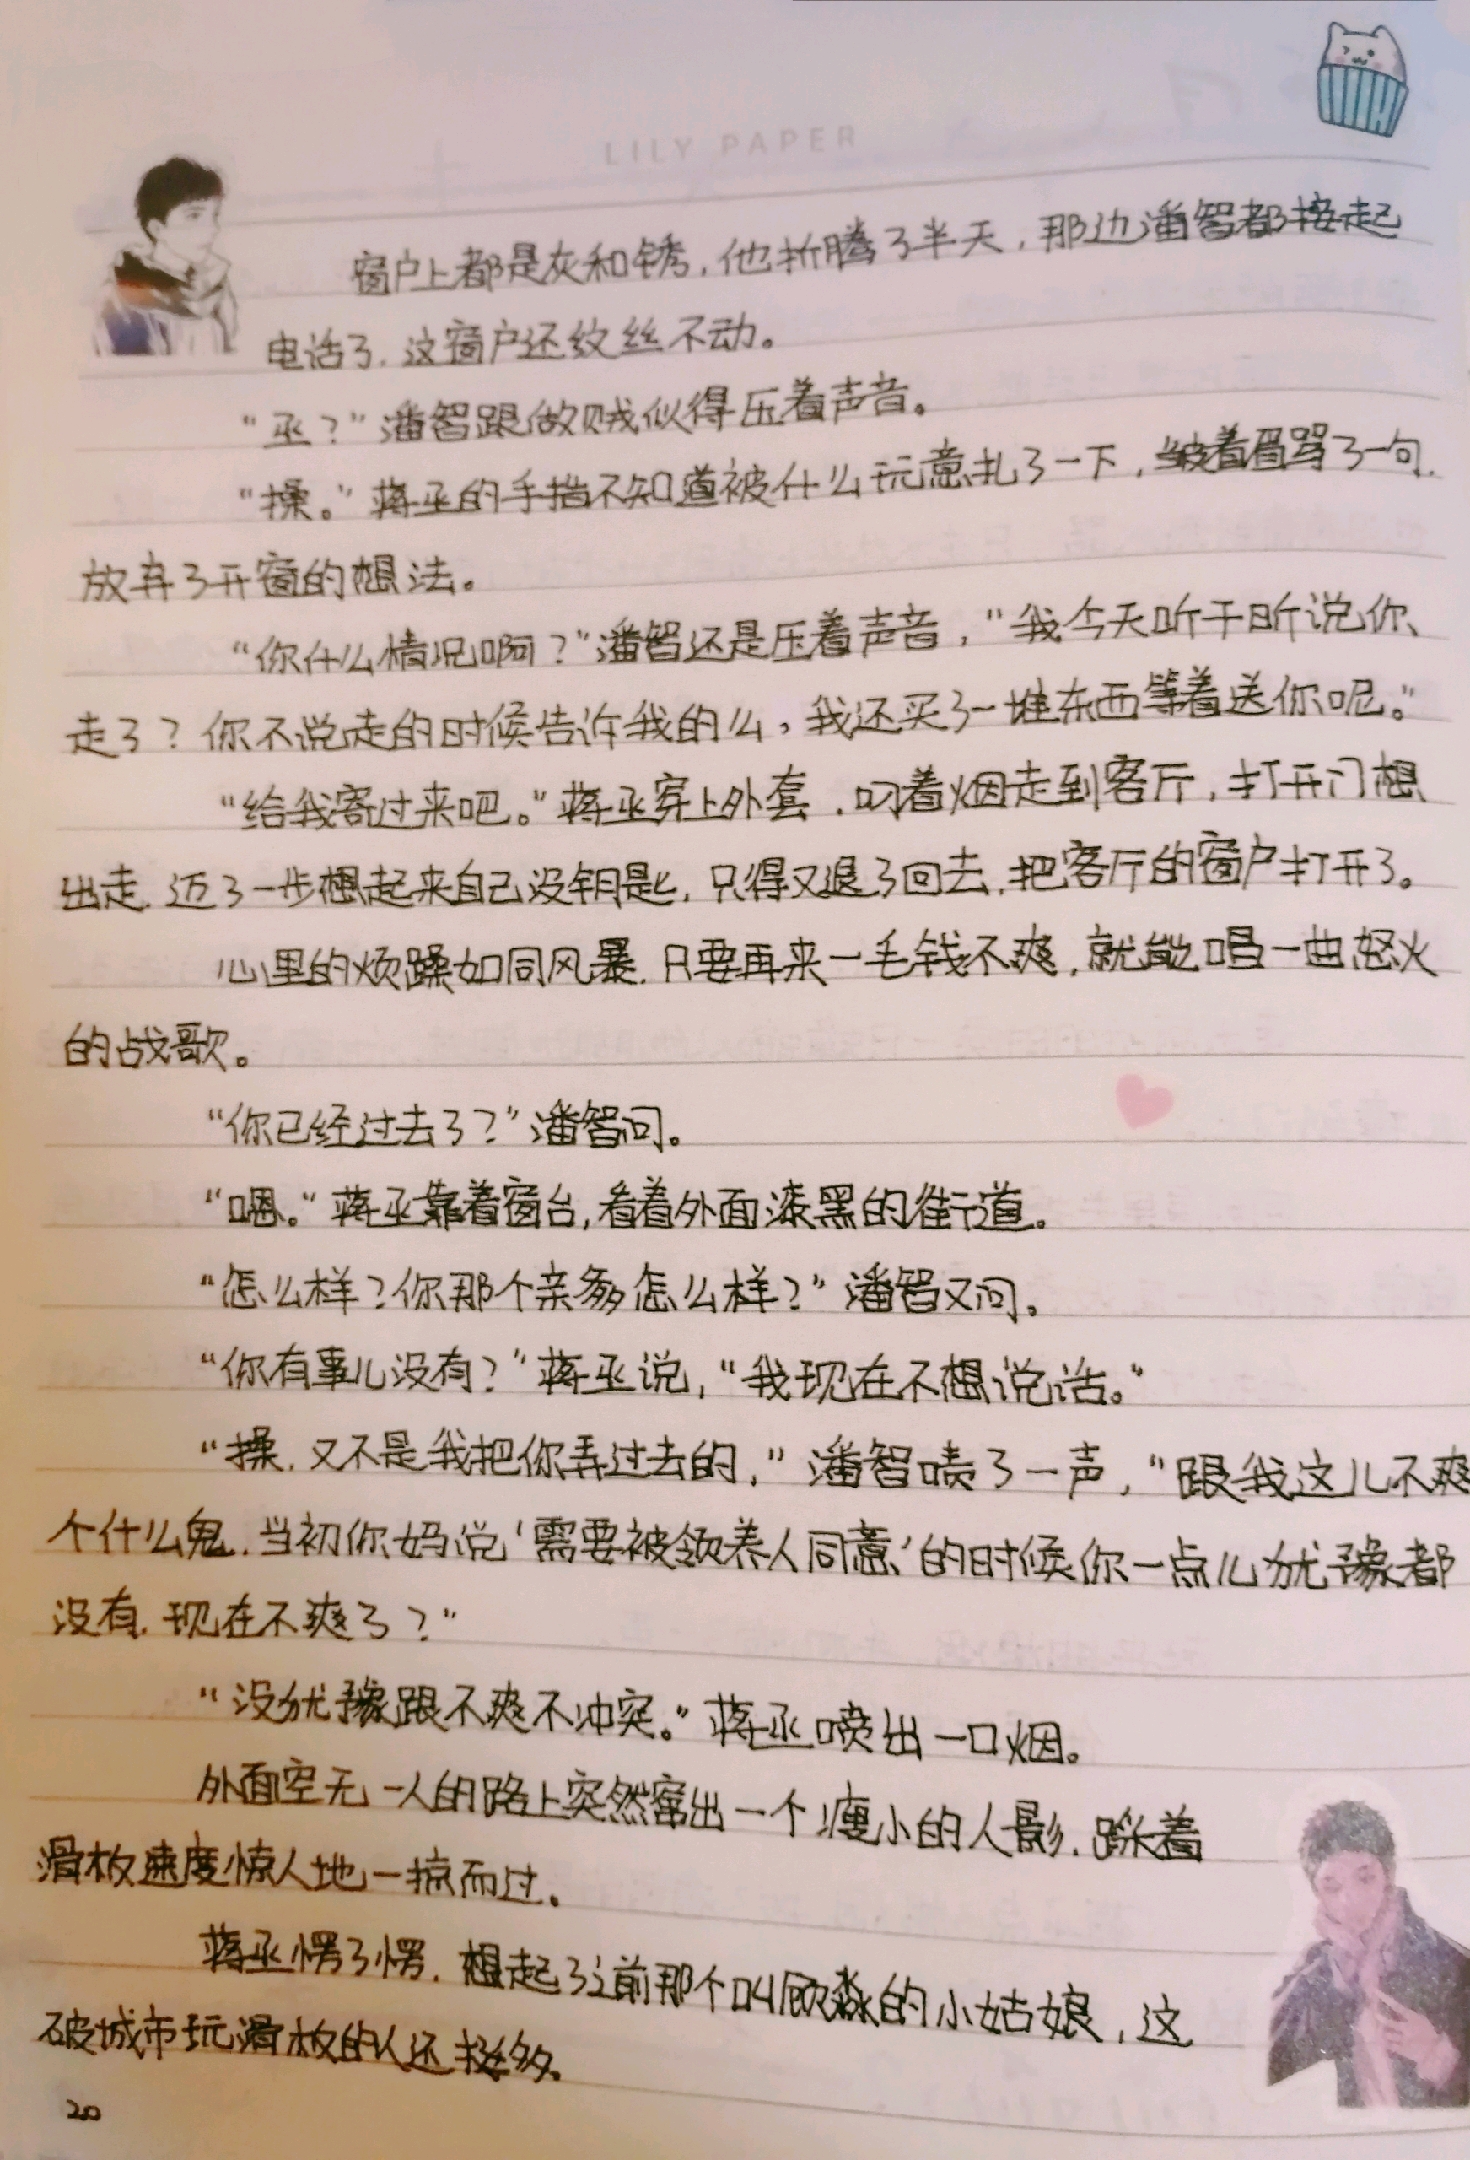 LILY PAPER
窗户上都是灰和锈,他折腾了半天,那边潘智都接起
电话了,这窗户还纹丝不动。
“丞?”潘智跟做贼似得压着声音。
“操。”蒋丞的手指不知道被什么玩意扎了一下,皱着眉骂了一句.
放弃了开窗的想法。
“你什么情况啊?”潘智还是压着声音,“我今天听于昕说你
走了?你不说走的时候告诉我的么,我还买了一堆东西等着送你呢。”
“给我寄过来吧。”蒋丞穿上外套,叼着烟走到客厅,打开门想
出走,迈了一步想起来自己没钥匙,只得又退了回去,把客厅的窗户打开了。
心里的烦躁如同风暴,只要再来一毛钱不爽,就能唱一曲怒火
的战歌。
“你已经过去了?”潘智问。
“嗯。”蒋丞靠着窗台,看着外面漆黑的街道。
“怎么样?你那个亲爹怎么样?”潘智又问。
“你有事儿没有?”蒋丞说,“我现在不想说话。”
“操,又不是我把你弄过去的,”潘智啧了一声,“跟我这儿不爽
个什么鬼,当初你妈说‘需要被领养人同意’的时候你一点儿犹豫都
没有,现在不爽了?”
“没犹豫跟不爽不冲突。”蒋丞喷出一口烟。
外面空无一人的路上突然窜出一个瘦小的人影,踩着
滑板速度惊人地一掠而过。
蒋丞愣了愣,想起了之前那个叫顾淼的小姑娘,这
破城市玩滑板的人还挺多。
20